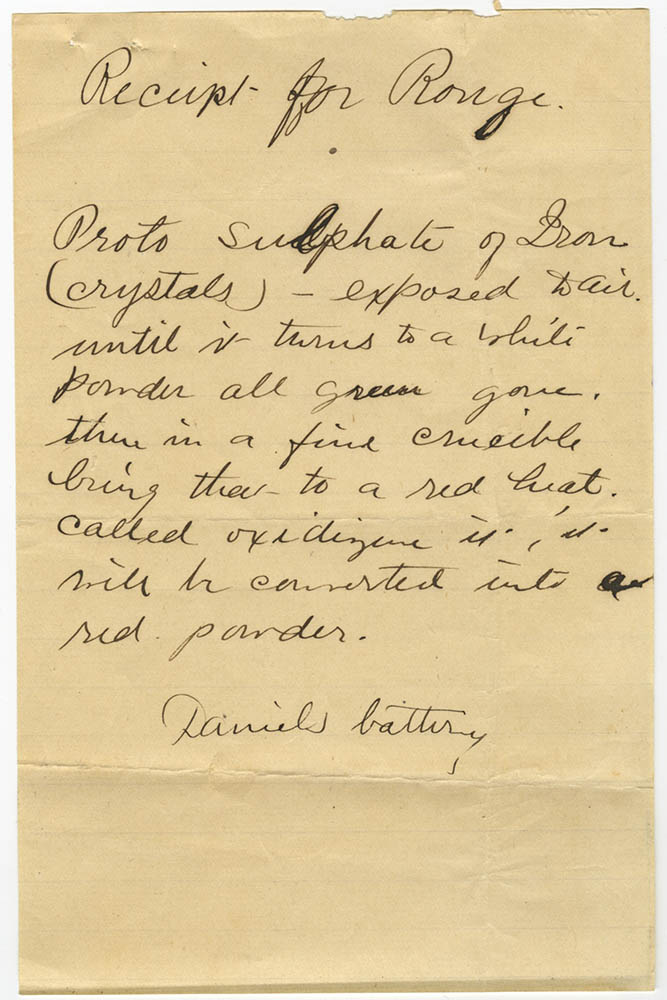 Receipt for Rouge.
Proto Sulphate of Iron
(crystals) - exposed to air.
until it turns to a white
powder all green gone.
then in a fine crucible
bring that to a red heat.
called oxidizeing it, it
will be converted into a
red powder.
Daniels battery